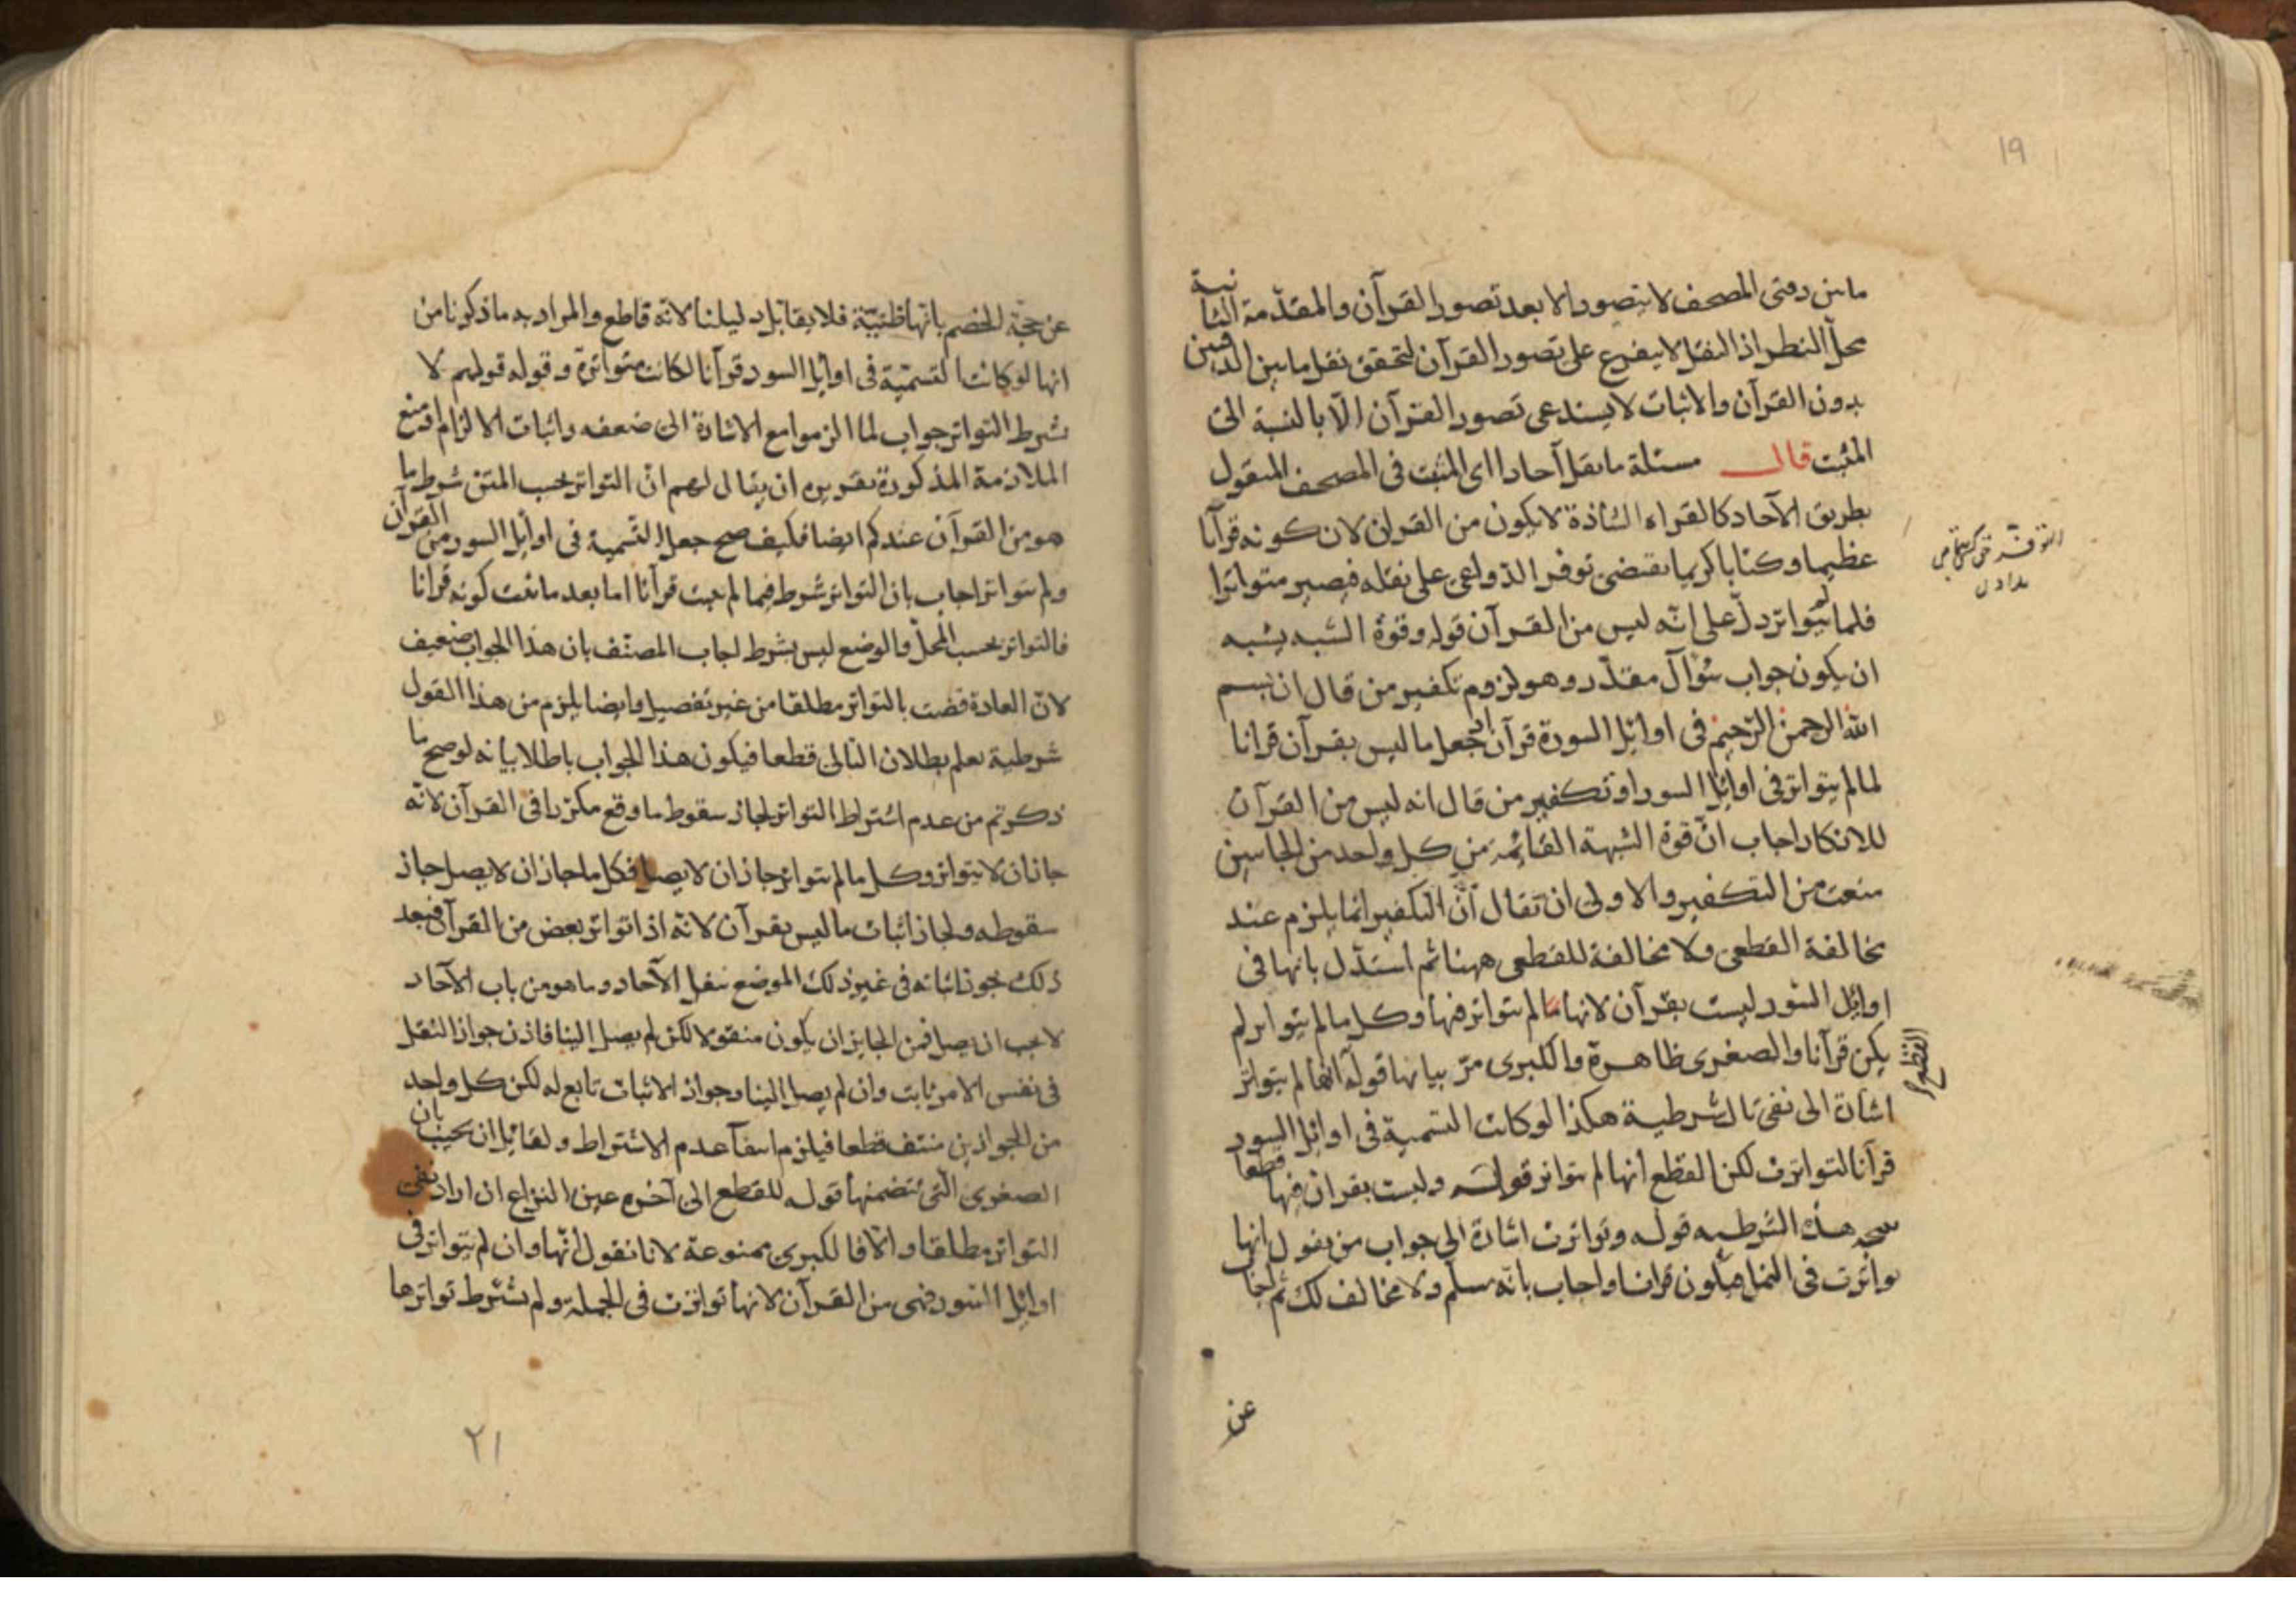 19
ما بين دفتى المصحف لا يتصور الا بعد تصور القرآن والمقدّمة الثانية
محلّ النظر اذ النقل لا يتفرع على تصور القرآن لتحقق نقل ما بين الدفتين
بدون القرآن والاثبات لا يستدعى تصور القرآن الّا بالنسبة الى
المثبت قال مسئلة ما نقل آحادا اى المثبت فى المصحف المنقول
بطريق الآحاد كالقراءة الشاذة لا يكون من القران لان كونه قرآنا
عظيما وكتابا كريما يقتضى توفر الدّواعى على نقله فيصير متواترا
فلما لم يتواتر دلّ على انّه ليس من القرآن قوله وقوة الشبه يشبه
ان يكون جواب سُؤال مقدّر وهو لزوم تكفير من قال ان بسم
الله الرحمن الرّحيم فى اوائل السورة قرآن لجعل ما ليس بقرآن قرانا
لما لم يتواتر فى اوائل السور او تكفير من قال انه ليس من القرآن
للانكار اجاب انّ قوة الشبهة القائمة من كل واحد من الجانبين
منعت من التكفير والاولى ان تقال انّ التكفير انما يلزم عند
مخالفة القطعى ولا مخالفة للقطعى ههنا ثم استدّل بانها فى
اوائل السُور ليست بقرآن لانها مما لم يتواتر فيها وكل ما لم يتواتر لم
يكن قرآنا والصغرى ظاهرة والكبرى مرّ بيانها قوله انها لم يتواتر
القطع
اشارة الى نفى تالى شرطية هكذا لو كانت التسمية فى اوائل السور
قرآنا لتواترت لكن القطع انها لم تتواتر قوله وليست بقران فيها قطعا
هذه الشرطيه قوله وتواترت اشارة الى جواب من يقول انها
تواترت فى النمل فيكون قرانا واجاب بانّه مسلّم ولا مخالف لك ثم اجاب
عن
عن حجّة الخصم بانها ظنيّة فلا يقابل دليلنا لانّه قاطع والمراد به ما ذكرنا من
انها لو كانت التسمّية فى اوائل السور قرآنا لكانت متواترة وقوله قولهم لا
شرط التواتر جواب لما الزموا مع الاشارة الى ضعفه واثبات الالزام او منع
الملازمة المذكورة تقريره ان يقال لهم انّ التواتر بحسب المتن شرط ما
هو من القرآن عندكم ايضا فكيف صح جعل التّسمية فى اوائل السور من القرآن
ولم تتواتر اجاب بان التواتر شرط فيما لم يثبت قرآنا اما بعد ما ثبت كونه قرانا
فالتواتر بحسب المحلّ والوضع ليس بشرط اجاب المصنّف بان هذا الجواب ضعيف
لانّ العادة قضت بالتواتر مطلقا من غير تفصيل وايضا يلزم من هذا القول
شرطية يعلم بطلان التالى قطعا فيكون هذا الجواب باطلا بيانه لو صح ما
ذكرتم من عدم اشتراط التواتر لجاز سقوط ما وقع مكررا فى القرآن لانّه
جاز ان لا يتواتر وكل ما لم يتواتر جاز ان لا يصل فكل ما جاز ان لا يصل جاز
سقوطه ولجاز اثبات ما ليس بقرآن لانّه اذا تواتر بعض من القرآن فبعد
ذلك جوز اثباته فى غير ذلك الموضع بنقل الآحاد وما هو من باب الآحاد
لا يجب ان يصل فمن الجايز ان يكون منقولا لكن لم يصل الينا فاذن جواز النقل
فى نفس الامر ثابت وان لم يصل الينا وجواز الاثبات تابع له لكن كل واحد
من الجوازين منتف قطعا فيلزم انتفآء عدم الاشتراط ولقائل ان يجيب بان
الصغرى الّتى تتضمنها قوله للقطع الى آخره عين النزاع ان اراد نفى
التواتر مطلقا والّا فالكبرى ممنوعة لانا نقول انّها وان لم يتواتر فى
اوائل السّور فهى من القرآن لانها تواترت فى الجملة ولم يشترط تواترها
٢١